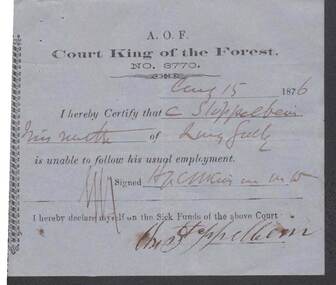 A. O. F.
Court King of the Forest.
NO. 3770.
Aug 15 1876
I hereby Certify that C Stoppelbein
of Long Gully
is unable to follow his usual employment.
Signed
I hereby declare myself on the Sick Funds of the above Court
Stoppelbein